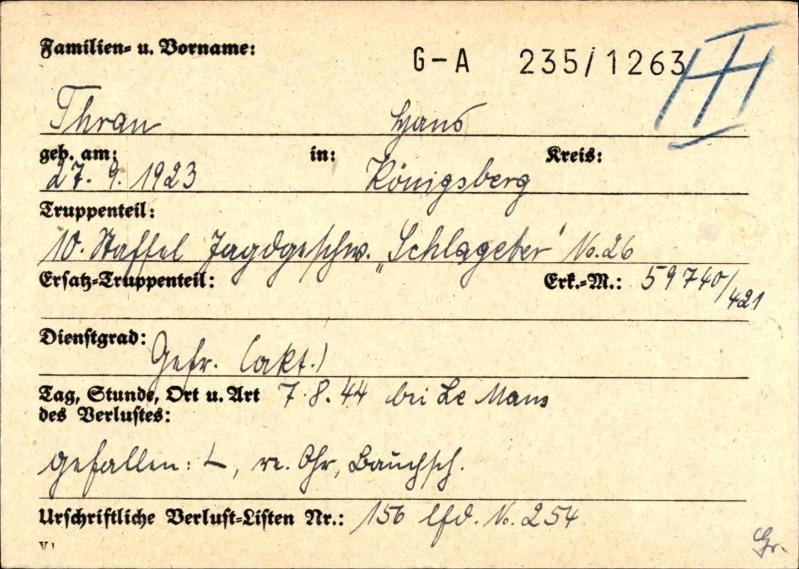 Familien- u. Vorname:
G-A 235/1263
Thran Hans
geb. am: in: Kreis:
27. 9. 1923 Königsberg
Truppenteil:
10. Staffel Jagdgeschw. „Schlageter" No. 26
Ersatz-Truppenteil: Erk.-M.: 59740/421
Dienstgrad: Gefr. (akt.)
Tag, Stunde, Ort u. Art 7.8.44 bei Le Mans
des Verlustes:
gefallen: , re. Ohr, Bauchsch.
Urschriftliche Verlust-Listen Nr.: 156 lfd. No. 254
Gr.